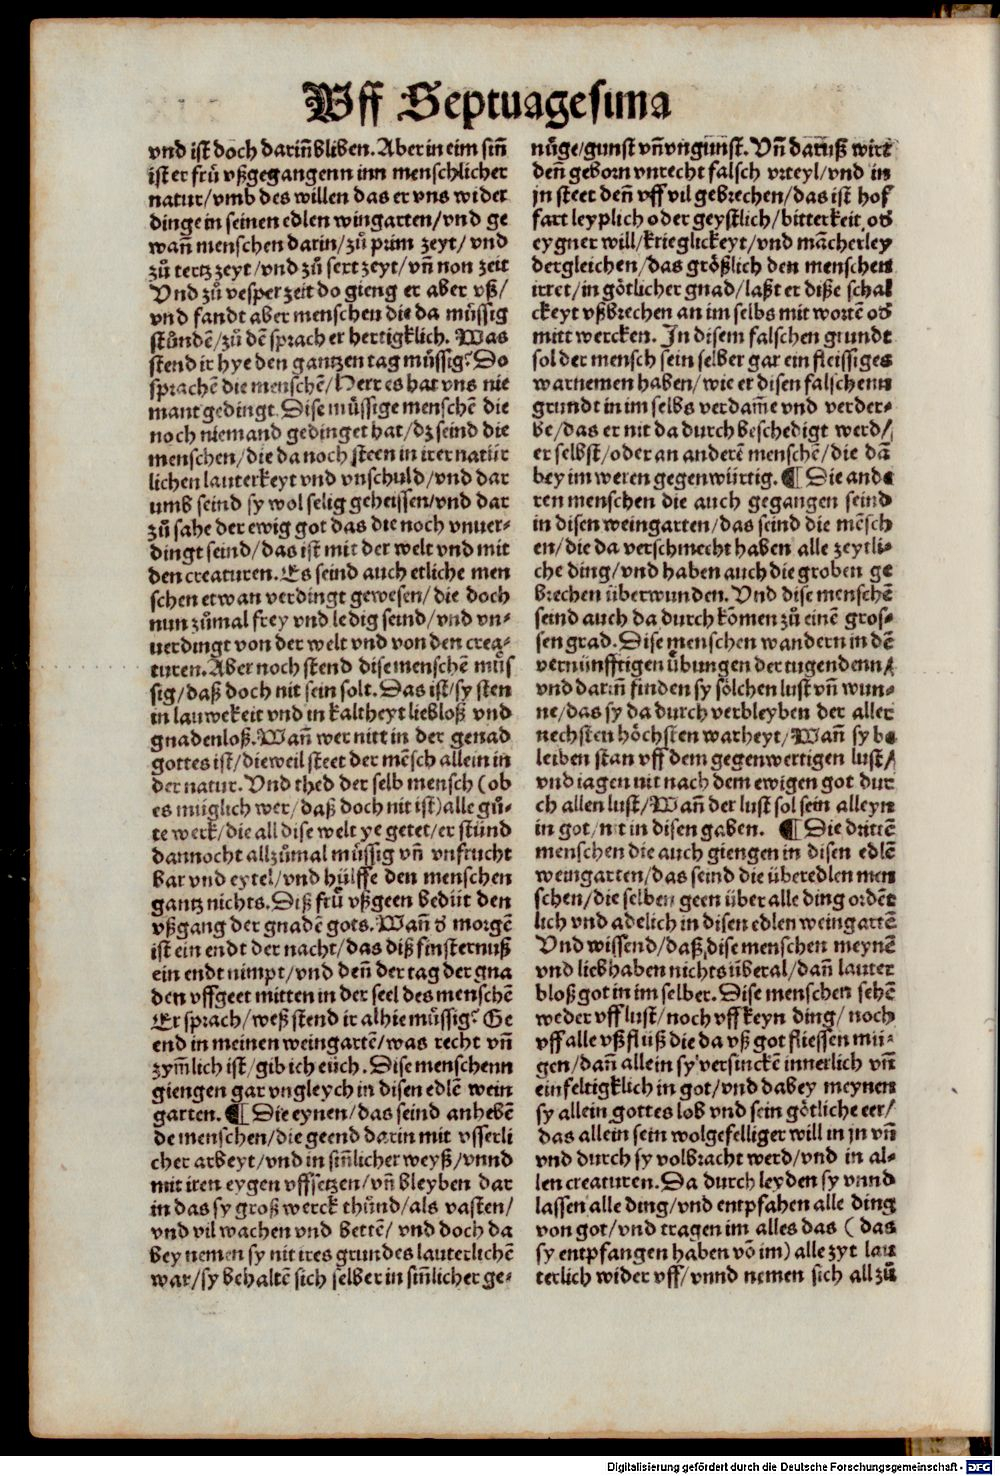 Uff Septuagesima
vnd ist doch dariñ bliben. Aber in eim siñ
ist er frů vßgegangenn inn menschlicher
natur/vmb des willen das er vns wider
dinge in seinen edlen wingarten/vnd ge
wañ menschen darin/zů prim zeyt/ vnd
zů tertz zeyt/vnd zů sext zeyt/vñ non zeit
Vnd zů vesper zeit do gieng er aber vß/
vnd fandt aber menschen die da müssig
stůndẽ/zů dẽ sprach er hertigklich. Was
stend ir hye den gantzen tag müssig? Do
sprachẽ die menschẽ/Herr es hat vns nie
mant gedingt. Dise müssige menschẽ die
noch niemand gedinget hat/dz seind die
menschen/die da noch steen in irer natür
lichen lauterkeyt vnd vnschuld/vnd dar
umb seind sy wol selig geheissen/vnd dar
zů sahe der ewig got das die noch vnuer-
dingt seind/das ist mit der welt vnd mit
den creaturen. Es seind auch etliche men
schen etwan verdingt gewesen/die doch
nun zůmal frey vnd ledig seind/vnd vn-
uerdingt von der welt vnd von den crea-
turen. Aber noch stend dise menschẽ müs
sig/daß doch nit sein solt. Das ist/sy sten
in lauwekeit vnd in kaltheyt liebloß vnd
gnadenloß. Wañ wer nitt in der genad
gottes ist/dieweil steet der mẽsch allein in
der natur. Vnd thed der selb mensch (ob
es müglich wer/daß doch nit ist) alle gů-
te werk/die all dise welt ye getet/er stünd
dannocht allzůmal müssig vñ vnfrucht
bar vnd eytel/vnd hülffe den menschen
gantz nichts. Diß frů vßgeen bedüt den
vßgang der gnadẽ gots. Wañ d̕ morgẽ
ist ein endt der nacht/das diß finsternuß
ein endt nimpt/vnd deñ der tag der gna
den vffgeet mitten in der seel des menschẽ
Er sprach/weß stend ir alhie müssig? Ge
end in meinen weingartẽ/was recht vñ
zym̃lich ist/gib ich eüch. Dise menschenn
giengen gar vngleych in disen edlẽ wein
garten. ¶ Die eynen/das seind anhebẽ
de menschen/die geend darin mit vsserli
cher arbeyt/vnd in siñlicher weyß/vnnd
mit iren eygen vffsetzen/vñ bleyben dar
in das sy groß werck thůnd/als vasten/
vnd vil wachen vnd bettẽ/ vnd doch da
bey nemen sy nit ires grundes lauterlichẽ
war/sy behaltẽ sich selber in siñlicher ge-
nůge/gunst vñ vngunst. Vñ daruß wirt
deñ geborn vnrecht falsch vrteyl/vnd in
jn steet deñ vff vil gebrechen/das ist hof
fart leyplich oder geystlich/bitterkeit od̕
eygner will/krieglickeyt/vnd mãcherley
dergleichen/das größlich den menschen
irret/in götlicher gnad/laßt er diße schal
ckeyt vßbrechen an im selbs mit wortẽ od̕
mitt wercken. In disem falschen grundt
sol der mensch sein selber gar ein fleissiges
warnemen haben/wie er disen falschenn
grundt in im selbs verdam̃e vnd verder-
be/das er nit da durch beschedigt werd/
er selbst/oder an anderẽ menschẽ/die dã
bey im weren gegenwürtig. ¶ Die ande
ren menschen die auch gegangen seind
in disen weingarten/das seind die mẽsch
en/die da verschmecht haben alle zeytli-
che ding/vnd haben auch die groben ge
brechen überwunden. Vnd dise menschẽ
seind auch da durch kõmen zů einẽ gros-
sen grad. Dise menschen wandern in dẽ
vernünfftigen übungen der tugendenn/
vnd dariñ finden sy sölchen lust vñ wun-
ne/das sy da durch verbleyben der aller
nechsten höchsten warheyt/Wañ sy be
leiben stan vff dem gegenwertigen lust/
vnd iagen nit nach dem ewigen got dur
ch allen lust/Wañ der lust sol sein alleyn
in got/nit in disen gaben. ¶ Die drittẽ
menschen die auch giengen in disen edlẽ
weingarten/das seind die überedlen men
schen/die selben geen über alle ding ordẽt
lich vnd adelich in disen edlen weingartẽ
Vnd wissend/daß dise menschen meynẽ
vnd liebhaben nichts überal/dañ lauter
bloß got in im selber. Dise menschen sehẽ
weder vff lust/noch vff keyn ding/ noch
vff alle vßflüß die da vß got fliessen mü-
gen/dañ allein sy versinckẽ innerlich vñ
einfeltigklich in got/vnd dabey meynen
sy allein gottes lob vnd sein götliche eer/
das allein sein wolgefelliger will in jn vñ
vnd durch sy volbracht werd/vnd in al-
len creaturen. Da durch leyden sy vnnd
lassen alle ding/vnd entpfahen alle ding
von got/vnd tragen im alles das ( das
sy entpfangen haben võ im) alle zyt lau
terlich wider vff/vnnd nemen sich all zů
Digitalisierung gefördert durch die Deutsche Forschungsgemeinschaft - DFG